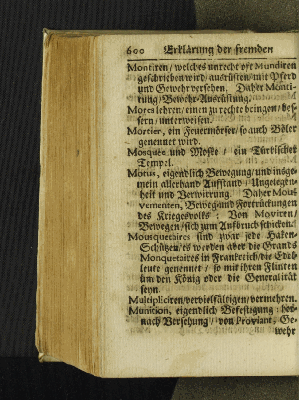 600 Erklärung der fremden
Montiren / welches unrecht oft Mundiren
geschrieben wird / ausrüsten / mit Pferd
und Gewehr versehen. Daher Monti-
rung / Bewehr-Ausrüstung.
Mores lehren / einen zu recht bringen / bes-
sern / unterweisen.
Mortier, ein Feuermörser / so auch Böler
genennet wird.
Mosquée und Moskee / ein Türkischer
Tempel.
Motus, eigendlich Bewegung / und insge-
mein allerhand Auffstand / Ungelegen-
heit und Verwirrung. Daher Mou-
vementen, Beweg- und Fortrückungen
des Kriegesvolks: Von Moviren /
Bewegen / sich zum Aufbruch schicken.
Mousquetaires sind zwar jede Haken-
Schützen / es werden aber die Grands
Monquetaires in Franckreich / die Edel-
leute genennet / so mit ihren Flinten
um den König oder die Generalität
seyn.
Multipliciren / vervielfältigen / vermehren.
Munition, eigendlich Befestigung: her-
nach Versehung / von Proviant, Ge-
wehr